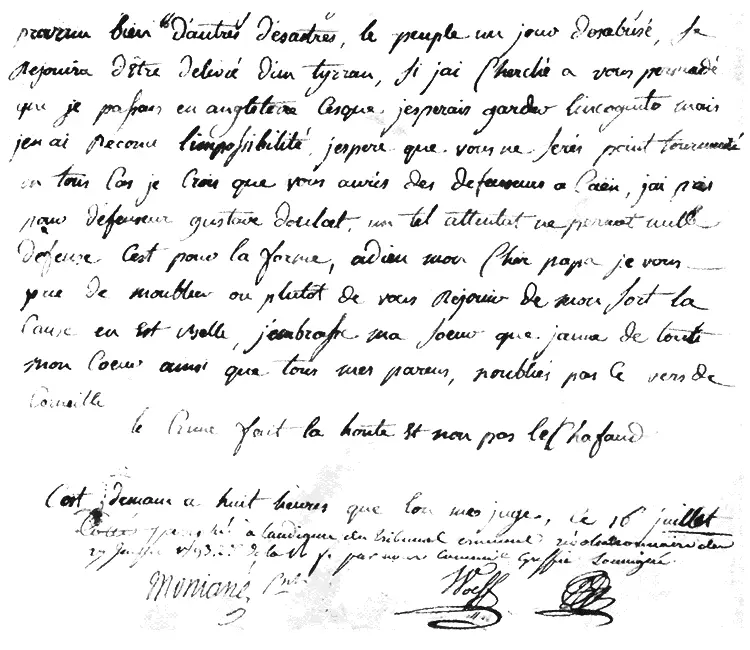 prevenu bien d'autres désastres, le peuple un jour desabusé, se
Rejouira d'être delivré d'un tyrran, si jai Cherché a vous persuadé
que je passais en angleterre Cesque jesperais garder lincognito mais
jen ai Reconu limpossibilité, jespere que vous ne serés point tourmenté
en tous Cas je Crois que vous auriés des defenseurs a Caën, jai pris
pour défenseur gustave doulcet, un tel attentat ne permet nulle
défense Cest pour la forme, adieu mon Cher papa je vous
prie de moublier ou plutot de vous Rejouir de mon sort la
Cause en Est belle, jembrasse ma soeur que jaime de toute
mon Coeur ainsi que tous mes parens, noubliés pas Ce vers de
Corneille
le Crime fait la honte Et non pas lEchafaud
Cest demain a huit heures que lon me juge, Ce 16 juillet
a laudience du tribunal criminel révolutionnaire du
de la R. f. par nous Commis Greffier Soussigné
Montané Pnt
Wolff